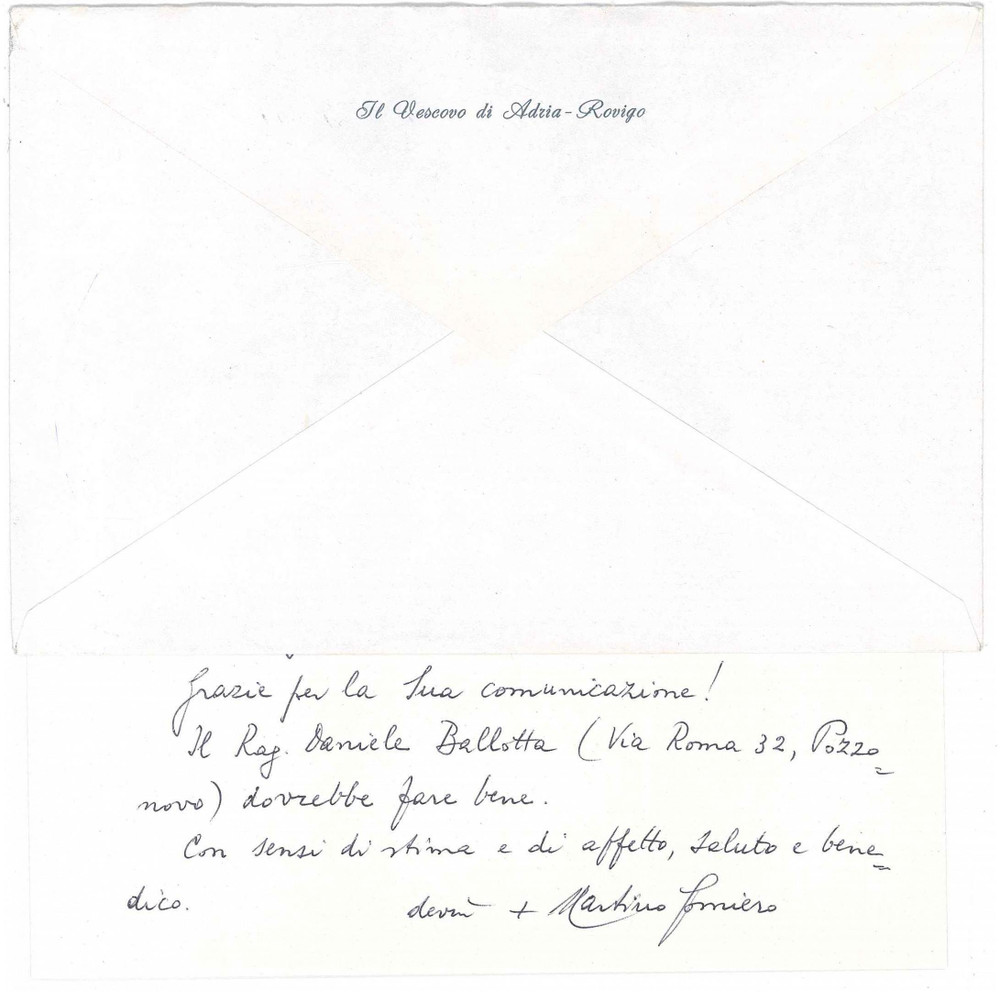 Il Vescovo di Adria-Rovigo
Grazie per la Sua comunicazione!
Il Rag. Daniele Ballotta (Via Roma 32, Pozzo=
novo) dovrebbe fare bene.
Con sensi di stima e di affetto, saluto e bene=
dico.
+ Martino Gomiero